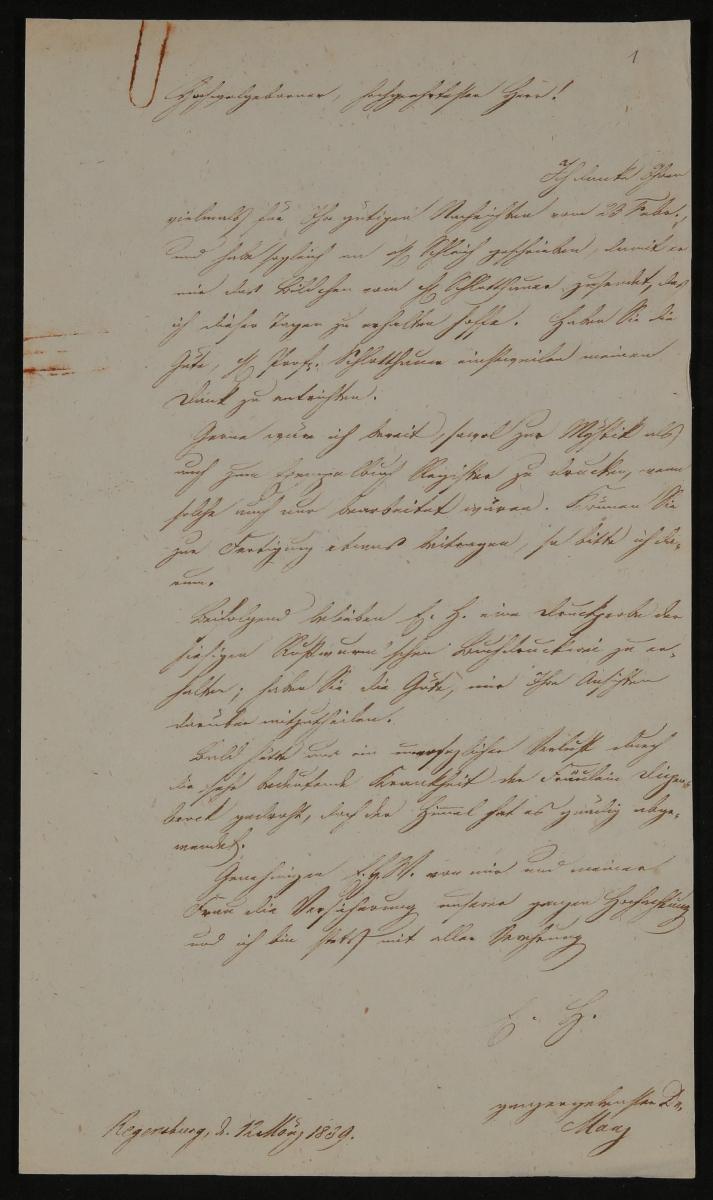 1
Hochwolgeborner, hochgeehrtester Herr!
Ich danke Ihnen
vielmals für Ihre gütigen Nachrichten vom 23 Febr.,
und habe sogleich an H. Schleich geschrieben, damit er
mir das Bildchen vom H. Schlotthauer zusendet, das
ich dieser Tagen zu erhalten hoffe. Haben Sie die
Güte, H. Prof. Schlotthauer einstweilen meinen
Dank zu entrichten.
Gerne wäre ich bereit, sowol zur Mystik als
auch zum Register zu drucken, wenn
solche auch nur bearbeitet wären. Können Sie
zur Fertigung etwas beitragen, so bitte ich da-
rum.
Beifolgend belieben E. H. eine Druckprobe der
hiesigen Buchdruckerei zu er-
halten; haben Sie die Güte, mir Ihre Ansichten
darüber mitzutheilen.
Bald hätte uns ein unersezlicher Verlust durch
die sehr bedeutende Krankheit der Fräulein Diepen-
brock gedroht, doch der Himmel hat es gnädig abge-
wendet.
Genehmigen E. H. von mir und meiner
Frau die Versicherung unserer ganzen Hochachtung
und ich bin stets mit aller Verehrung
E. H.
ganz ergebenster Dr.
Manz
Regensburg, d. 12 März 1839.